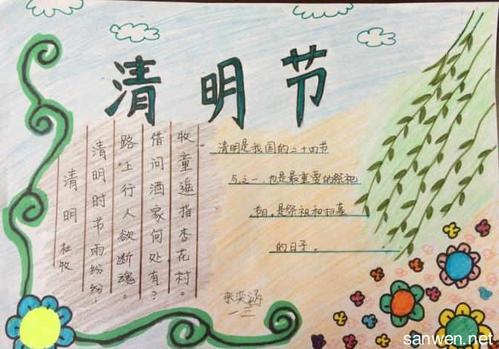 清明节
清明 杜牧
清明时节雨纷纷,
路上行人欲断魂。
借问酒家何处有?
牧童遥指杏花村。
清明是我国的二十四节
之一.也是最重要的祭祀
是祭祖和扫墓
的日子.
sanwen.net